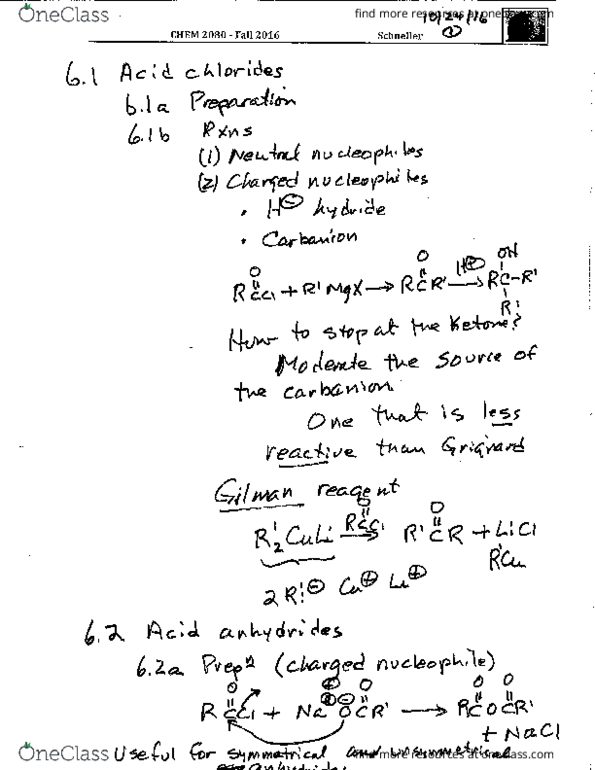 OneClass find more resources at oneclass.com
10/24/16
CHEM 2080 - Fall 2016 Schneller ①
6.1 Acid chlorides
6.1a Preparation
6.1b Rxns
(1) Neutral nucleophiles
(2) Charged nucleophiles
• H⊖ hydride
• Carbanion
O O OH
RCCl + R'MgX → RCR' H⊕→ RC-R'
R'
How to stop at the Ketone?
Moderate the source of
the carbanion.
One that is less
reactive than Grignard
Gilman reagent
R'₂CuLi RCCl→ R'CR + LiCl
R'Cu
2R:⊖ Cu⊕ Li⊕
6.2 Acid anhydrides
6.2a Prepⁿ (charged nucleophile)
O ⊕ ⊖ O O O
RCCl + Na OCR' → RCOCR'
+ NaCl
Useful for symmetrical and unsymmetrical
OneClass find more resources at oneclass.com
anhydrides